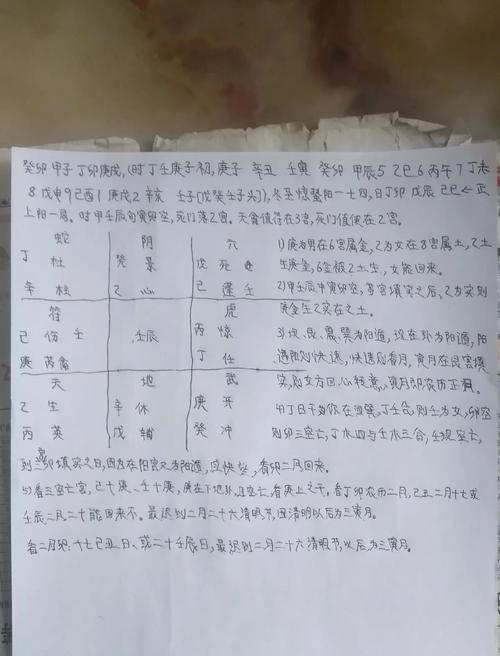 癸卯 甲子 丁卯庚戌,(时丁壬庚子初,庚子 辛丑 壬寅 癸卯 甲辰5 乙巳6 丙午7 丁未
8 戊申9己酉1 庚戌2 辛亥 壬子[戊癸壬子头]),冬至惊蛰阳一七四,日丁卯 戊辰 己巳←正
上阳一局。时甲壬辰旬寅卯空,死门落2宫。天禽值符在3宫,死门值使在2宫。
蛇 阴 六
丁 杜 癸 景 戊 死
辛 柱 乙 心 己 蓬 壬
符 虎
己 伤 壬 壬辰 丙 惊
庚 芮禽 丁 任
天 地 武
乙 生 辛 休 庚 开
丙 英 戊 辅 癸 冲
1)庚为男在6宫属金,乙为女在8宫属土,乙土
生庚金,6金被乙土生,女能回来。
2)甲壬辰中寅卯空,等宫填实之后,乙为实则
庚金生乙实在之土。
3)坎、艮、震、巽为阳遁,现在外为阳遁,阳
遇阳则快速,快速则看月,寅月在艮宫填
实,则女方回心转意,寅月即农历正月。
4)丁日干为你在四巽,丁壬合,则壬为女,卯空
则卯三空亡,丁木四与壬木三合,壬现空亡,
到三卯填实之日,因为在阳宫又为阳遁,应快些,看卯二月回来。
5)看三空亡宫,己十庚、壬十庚,庚在下地,且空亡,看庚上之干,看丁卯农历二月,己丑二月十七或
壬辰二月二十能回来不。最迟到二月二十六清明节,因清明以后为三寅月。
看二月卯:十七己丑日、或二十壬辰日,最迟到二月二十六清明节,以后为三寅月。